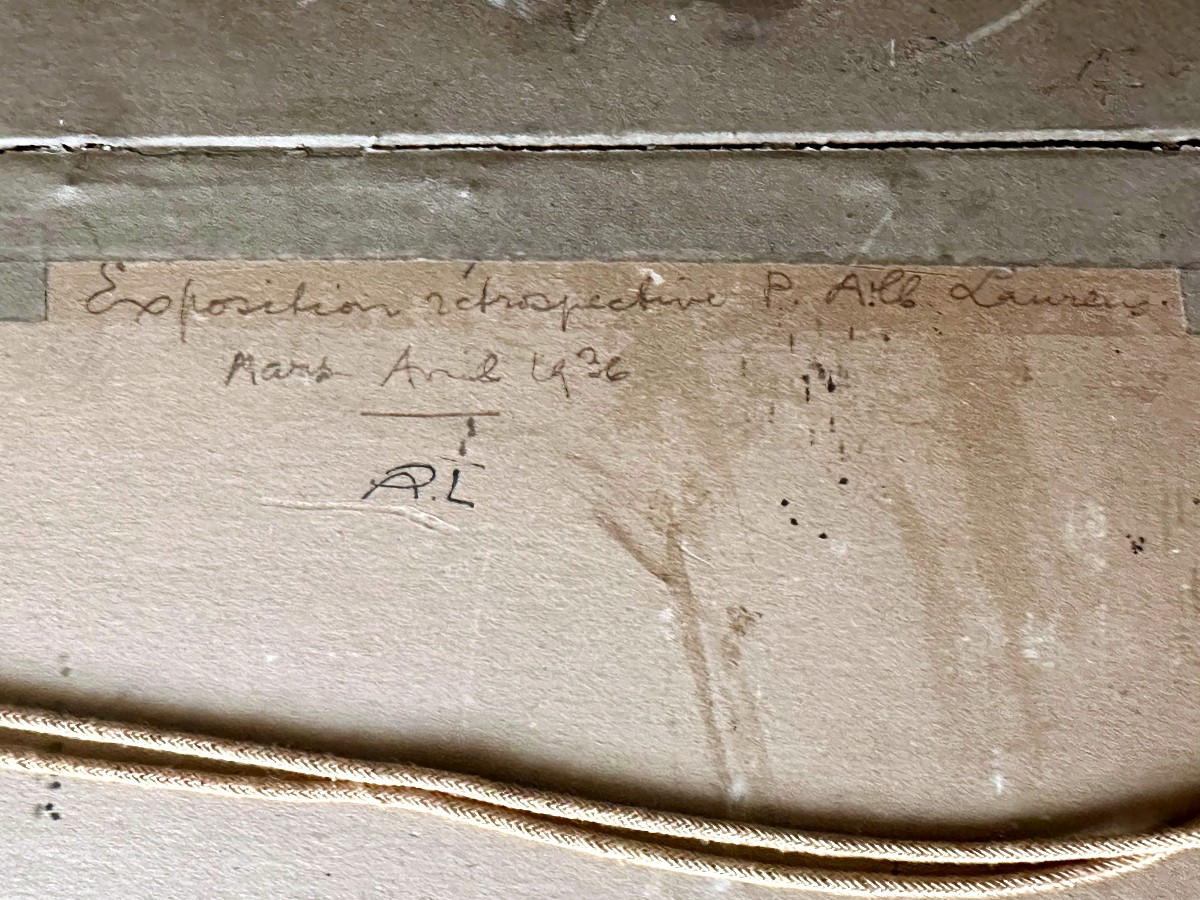 Exposition rétrospective P. Alb Laurens.
Mars Avril 1936
A.L